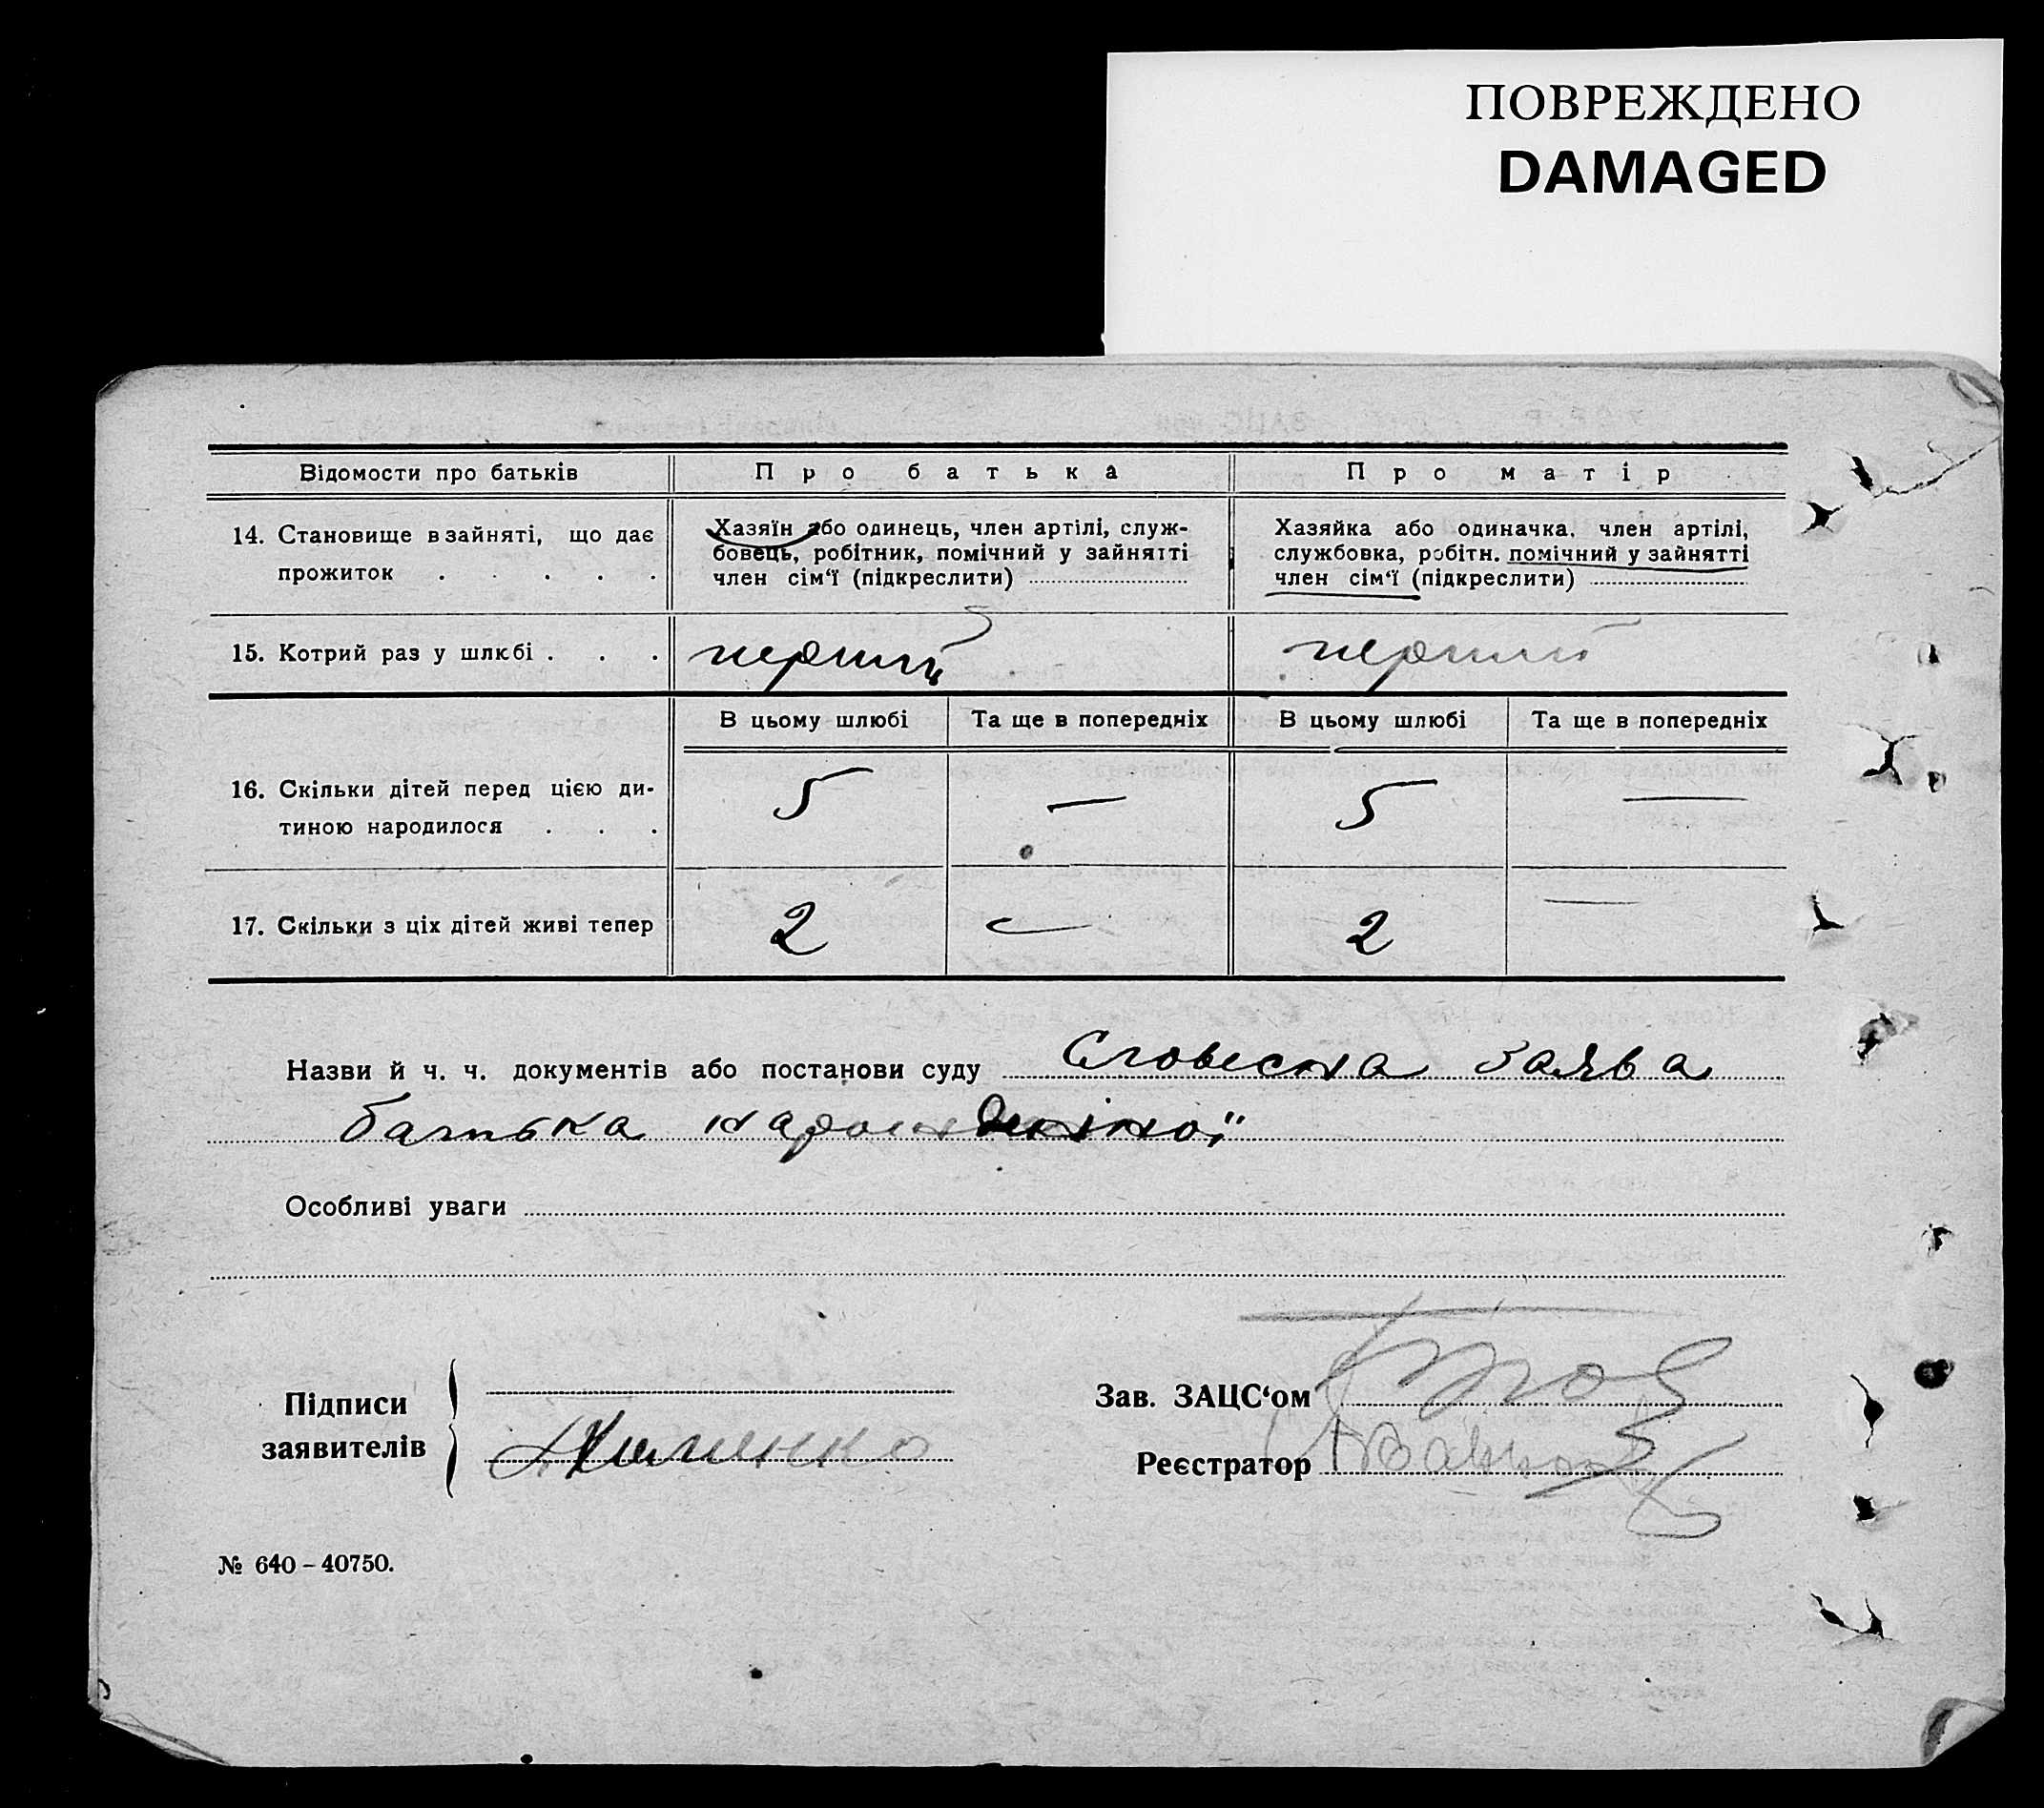 ПОВРЕЖДЕНО
DAMAGED
Відомости про батьків
Про батька
Про матір
14. Становище в зайняті, що дає
прожиток . . . . .
Хазяїн або одинець, член артілі, служ-
бовець, робітник, помічний у зайнятті
член сім‘ї (підкреслити)
Хазяйка або одиначка, член артілі,
службовка, робітн. помічний у зайнятті
член сім‘ї (підкреслити)
15. Котрий раз у шлюбі . . .
перший
перший
В цьому шлюбі
Та ще в попередніх
В цьому шлюбі
Та ще в попередніх
16. Скільки дітей перед цією ди-
тиною народилося . . .
5
—
5
—
17. Скільки з ціх дітей живі тепер
2
—
2
—
Назви й ч. ч. документів або постанови суду Словесна заява
батька
Особливі уваги
Підписи
заявителів
Зав. ЗАЦС‘ом
Реєстратор
№ 640 – 40750.